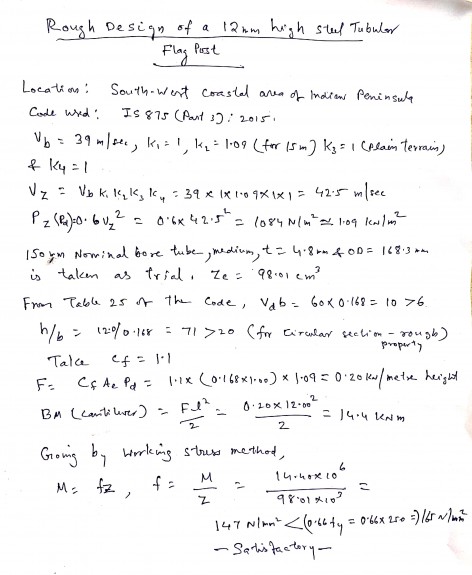 Rough Design of a 12mm high steel Tubular
Flag Post
Location: South-West coastal area of Indian Peninsula
Code used: IS 875 (Part 3): 2015.
Vb = 39 m/sec, k1 = 1, k2 = 1.09 (for 15m) k3 = 1 (plain terrain)
& k4 = 1
Vz = Vb k1 k2 k3 k4 = 39 x 1x 1.09 x 1 x 1 = 42.5 m/sec
Pz (Pd) = 0.6 Vz² = 0.6x 42.5² = 1084 N/m² ≃ 1.09 kN/m²
150 mm Nominal bore tube, medium, t = 4.8 mm & OD = 168.3 mm
is taken as trial. Ze = 98.01 cm³
From Table 25 of the Code, Vdb = 60 x 0.168 = 10 > 6
h/b = 12.0/0.168 = 71 > 20 (for circular section - rough)
property
Take Cf = 1.1
F = Cf Ae Pd = 1.1x (0.168x1.00) x 1.09 = 0.20 kN/metre height
BM (cantilever) = Fl²/2 = 0.20 x 12.00²/2 = 14.4 kNm
Going by working stress method,
M = fz, f = M/Z = 14.40x10⁶/98.01x10³ =
147 N/mm² < (0.66 fy = 0.66x 250 =) 165 N/mm²
- Satisfactory -